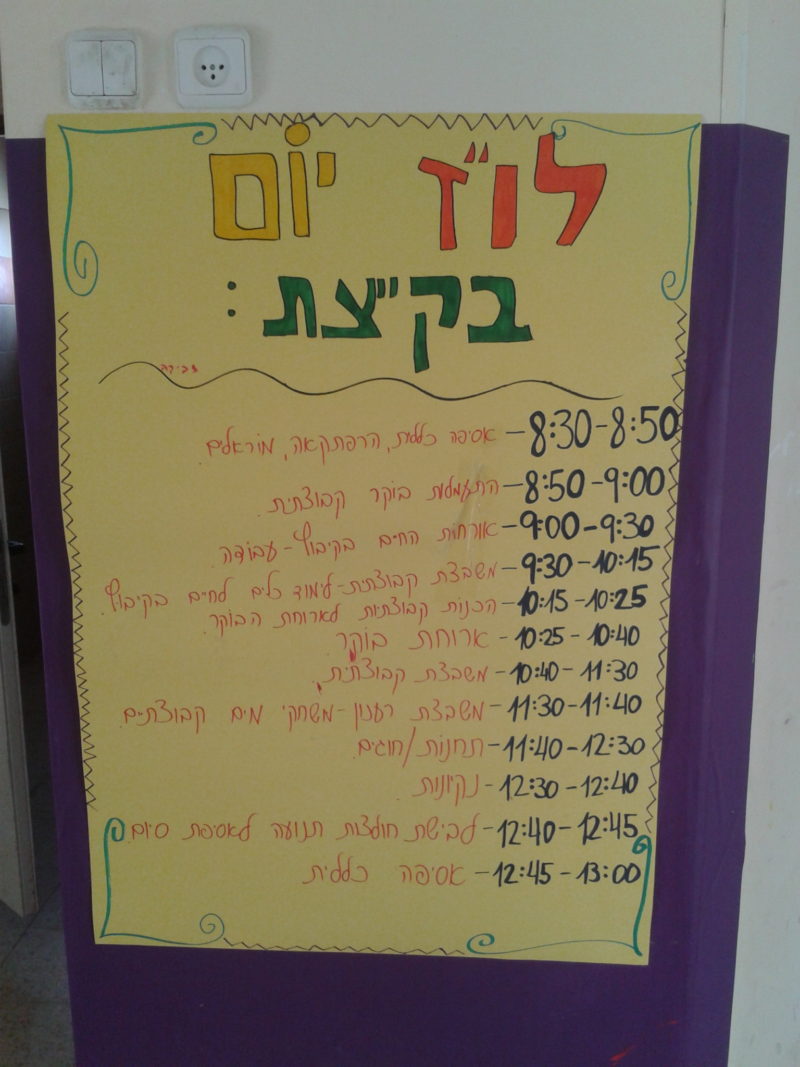 לו"ז יוֹם
בק"צת:
8:30-8:50 - אסיפה כללית, הרפתקאה, מוֹראלים.
8:50-9:00 - התעמלות בוֹקר קבוצתית.
9:00-9:30 - אורחוֹת החיים בקיבוץ-עבוֹדה.
9:30-10:15 - משבצת קבוצתית-לימוד כלים לחיים בקיבוץ.
10:15-10:25 - הכנוֹת קבוצתיות לארוחת הבוֹקר.
10:25-10:40 - ארוחת בוֹקר.
10:40-11:30 - משבצת קבוצתית.
11:30-11:40 - משבצת רענון-משחקי מים קבוצתיים.
11:40-12:30 - תחנוֹת/חוגים.
12:30-12:40 - נקיונות.
12:40-12:45 - לבישת חולצות תנועה לאסיפת סיום.
12:45-13:00 - אסיפה כללית.